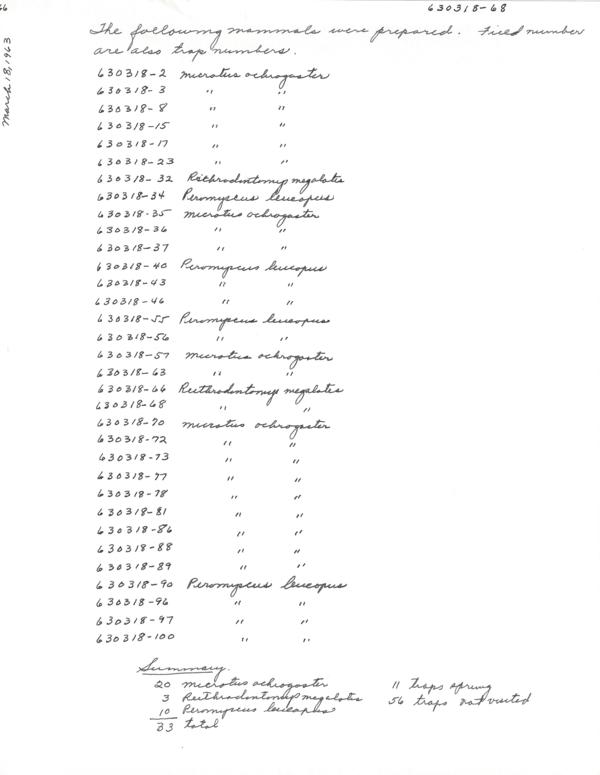 66
630318-68
March 18, 1963
The following mammals were prepared. Field number
are also trap numbers.
630318-2 Microtus ochrogaster
630318-3 " "
630318-8 " "
630318-15 " "
630318-17 " "
630318-23 " "
630318-32 Reithrodontomys megalotis
630318-34 Peromyscus leucopus
630318-35 Microtus ochrogaster
630318-36 " "
630318-37 " "
630318-40 Peromyscus leucopus
630318-43 " "
630318-46 " "
630318-55 Peromyscus leucopus
630318-56 " "
630318-57 Microtus ochrogaster
630318-63 " "
630318-66 Reithrodontomys megalotis
630318-68 " "
630318-70 Microtus ochrogaster
630318-72 " "
630318-73 " "
630318-77 " "
630318-78 " "
630318-81 " "
630318-86 " "
630318-88 " "
630318-89 " "
630318-90 Peromyscus leucopus
630318-96 " "
630318-97 " "
630318-100 " "
Summary.
20 Microtus ochrogaster 11 traps sprung
3 Reithrodontomys megalotis 56 traps not visited
10 Peromyscus leucopus
33 total